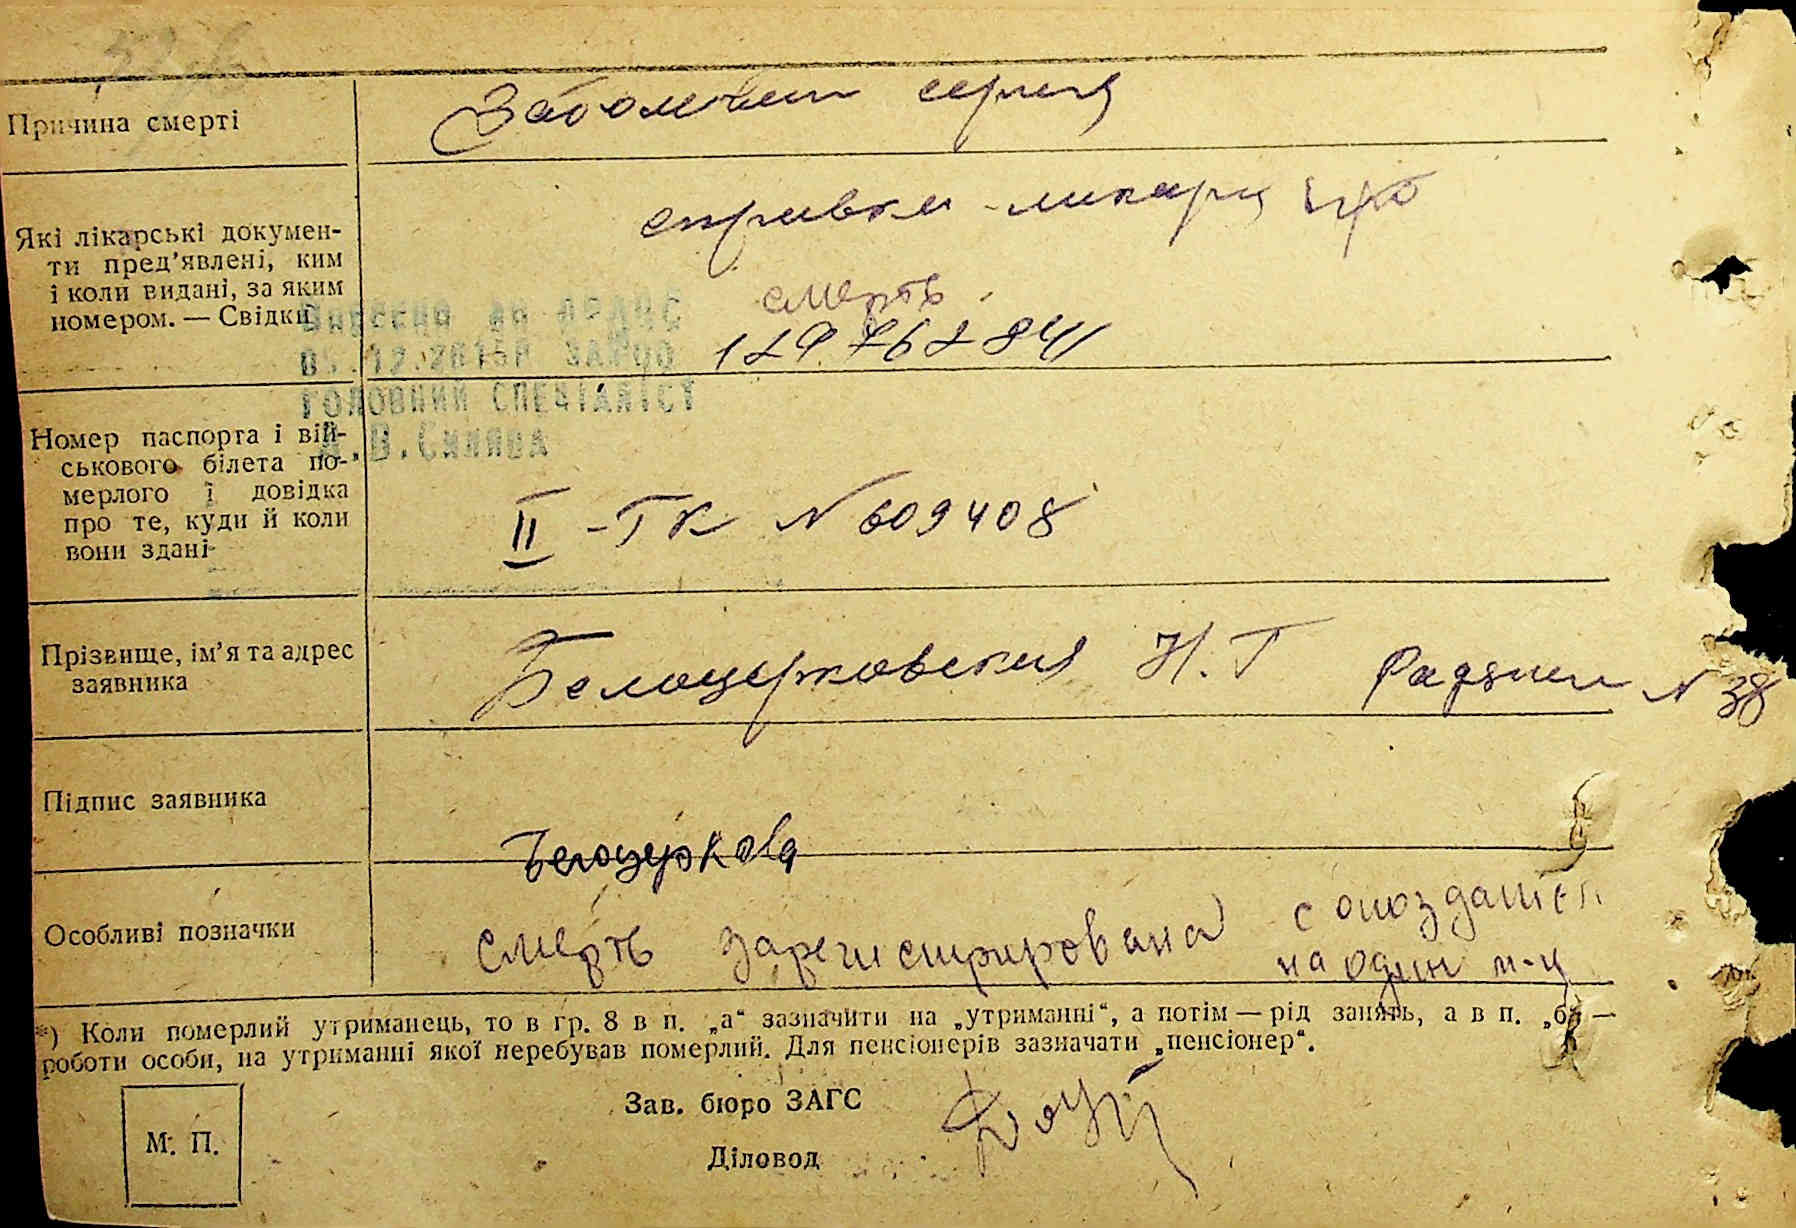 Причина смерті
Заболевания сердця
Які лікарські докумен-
ти пред'явлені, ким
і коли видані, за яким
номером. — Свідки
справка ликаря про
смерть
Внесено до ДРАЦС
ГОЛОВНИЙ СПЕЦІАЛІСТ
Номер паспорта і вій-
ськового білета по-
мерлого і довідка
про те, куди й коли
вони здані
II - ТК N 609408
Прізвище, ім'я та адрес
заявника
Белоцерковская Н. Г N 38
Підпис заявника
Белоцеркова
Особливі позначки
смерть зарегистрирована с опозданием
на один м-ц
*) Коли померлий утриманець, то в гр. 8 в п. „а“ зазначити на „утриманні“, а потім — рід занять, а в п. „б“ —
роботи особи, на утриманні якої перебував померлий. Для пенсіонерів зазначати „пенсіонер“.
Зав. бюро ЗАГС
Діловод
М. П.